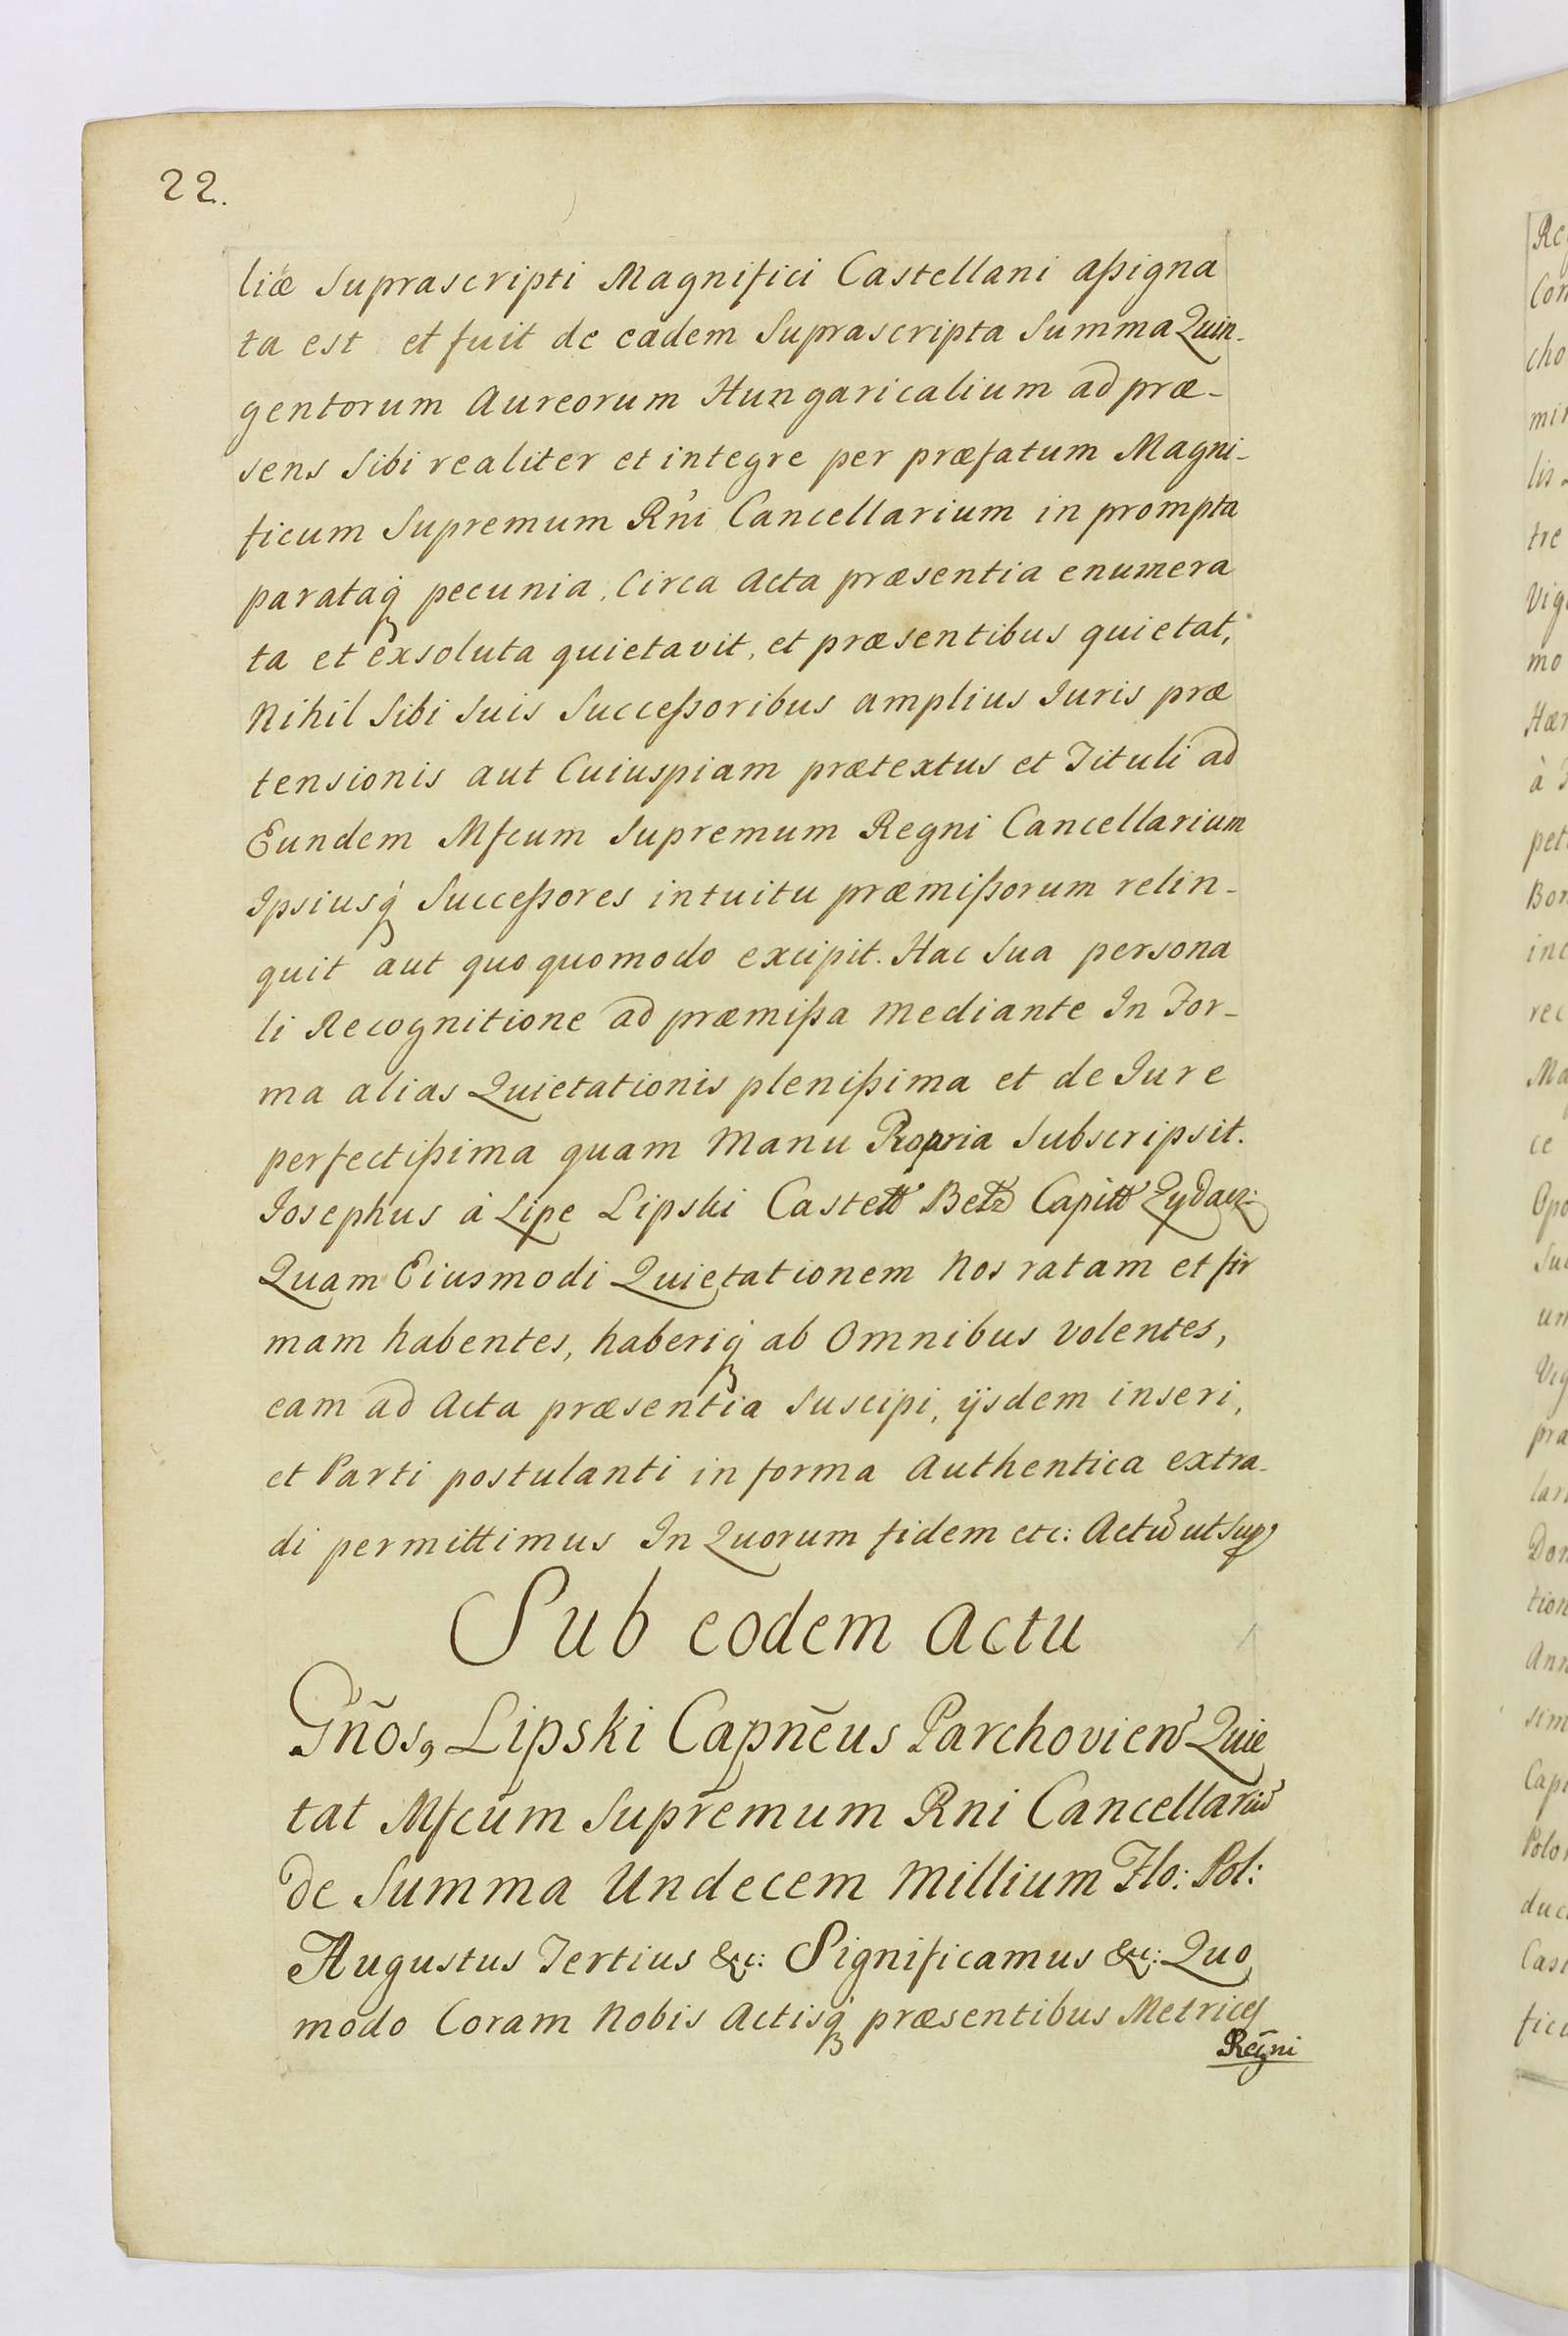 22.
liæ Suprascripti Magnifici Castellani aßigna
ta est et fuit de eadem Suprascripta Summa Quin-
gentorum Aureorum Hungaricalium ad præ-
sens Sibi realiter et integre per præfatum Magni-
ficum Supremum Rñi Cancellarium in prompta
parataq́ pecunia, Circa Acta præsentia enumera
ta et exsoluta quietavit, et præsentibus quietat,
Nihil Sibi Suis Succeßoribus amplius Iuris præ
tensionis aut Cuiuspiam prætextus et Tituli ad
Eundem Mfcum Supremum Regni Cancellarium
Ipsiusq́ Succeßores intuitu præmißorum relin-
quit aut quoquomodo excipit. Hac Sua persona
li Recognitione ad præmißa mediante In For-
ma alias Quietationis plenißima et de Iure
perfectißima quam Manu Propria Subscripsit.
Iosephus à Lipe Lipski Castell Belz Capitt Zydacz:
Quam Eiusmodi Quietationem Nos ratam et fir
mam habentes, haberiq́ ab Omnibus volentes,
eam ad Acta præsentia Suscipi, ijsdem inseri,
et Parti postulanti in forma Authentica extra-
di permittimus In Quorum fidem etc: Actũ ut Sup
Sub eodem Actu
Gñosq Lipski Capñeus Parchovien Quie
tat Mfcũm Supremum Rni Cancellariũ
De Summa Undecem Millium Flo: Pol:
Augustus Tertius &c: Significamus &c: Quo
modo Coram Nobis Actisq́ præsentibus Metrices
Regni
Re
Con
cho
lis
tre
Vig
mo
Hær
à
pet
Bon
inc
rec
Ma
ce
Opo
Suc
un
Vig
præ
lari
Don
tion
Ann
sim
Capi
Polo
duc
Cast
fic